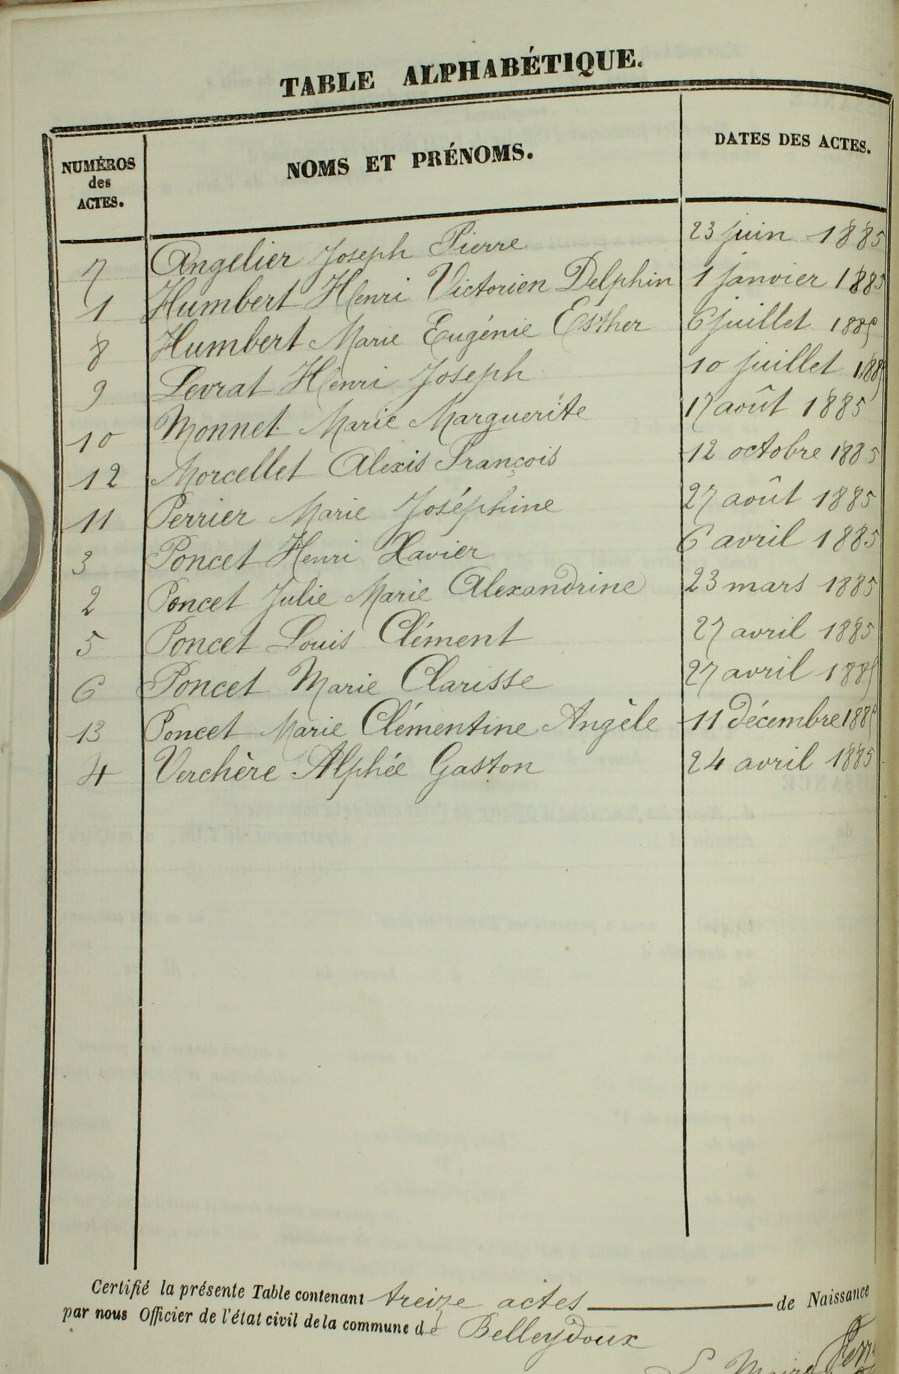 TABLE ALPHABÉTIQUE.
NUMÉROS des ACTES. NOMS ET PRÉNOMS. DATES DES ACTES.
7 Angelier Joseph Pierre 23 juin 1885
1 Humbert Henri Victorien Delphin 1 janvier 1885
8 Humbert Marie Eugénie Esther 6 juillet 1885
9 Levrat Henri Joseph 10 juillet 1885
10 Monnet Marie Marguerite 17 août 1885
12 Morcellet Alexis François 12 octobre 1885
11 Perrier Marie Joséphine 27 août 1885
3 Poncet Henri Xavier 6 avril 1885
2 Poncet Julie Marie Alexandrine 23 mars 1885
5 Poncet Louis Clément 27 avril 1885
6 Poncet Marie Clarisse 27 avril 1885
13 Poncet Marie Clémentine Angèle 11 décembre 1885
4 Verchère Alphée Gaston 24 avril 1885
Certifié la présente Table contenant treize actes de Naissance
par nous Officier de l'état civil de la commune de Belleydoux